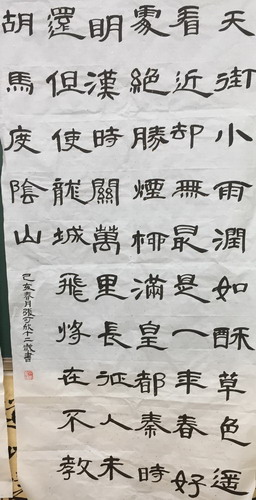 天街小雨潤如酥草色遥
看近却無最是一年春好
處絶勝煙柳滿皇都秦時
明漢時關萬里長征人未
還但使龍城飛將在不教
胡馬度陰山
己亥春月張十二歲書